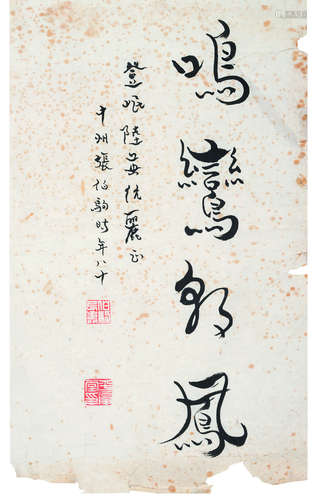 鳴鸞翔鳳
登陸伉麗正
中州張伯駒時年八十